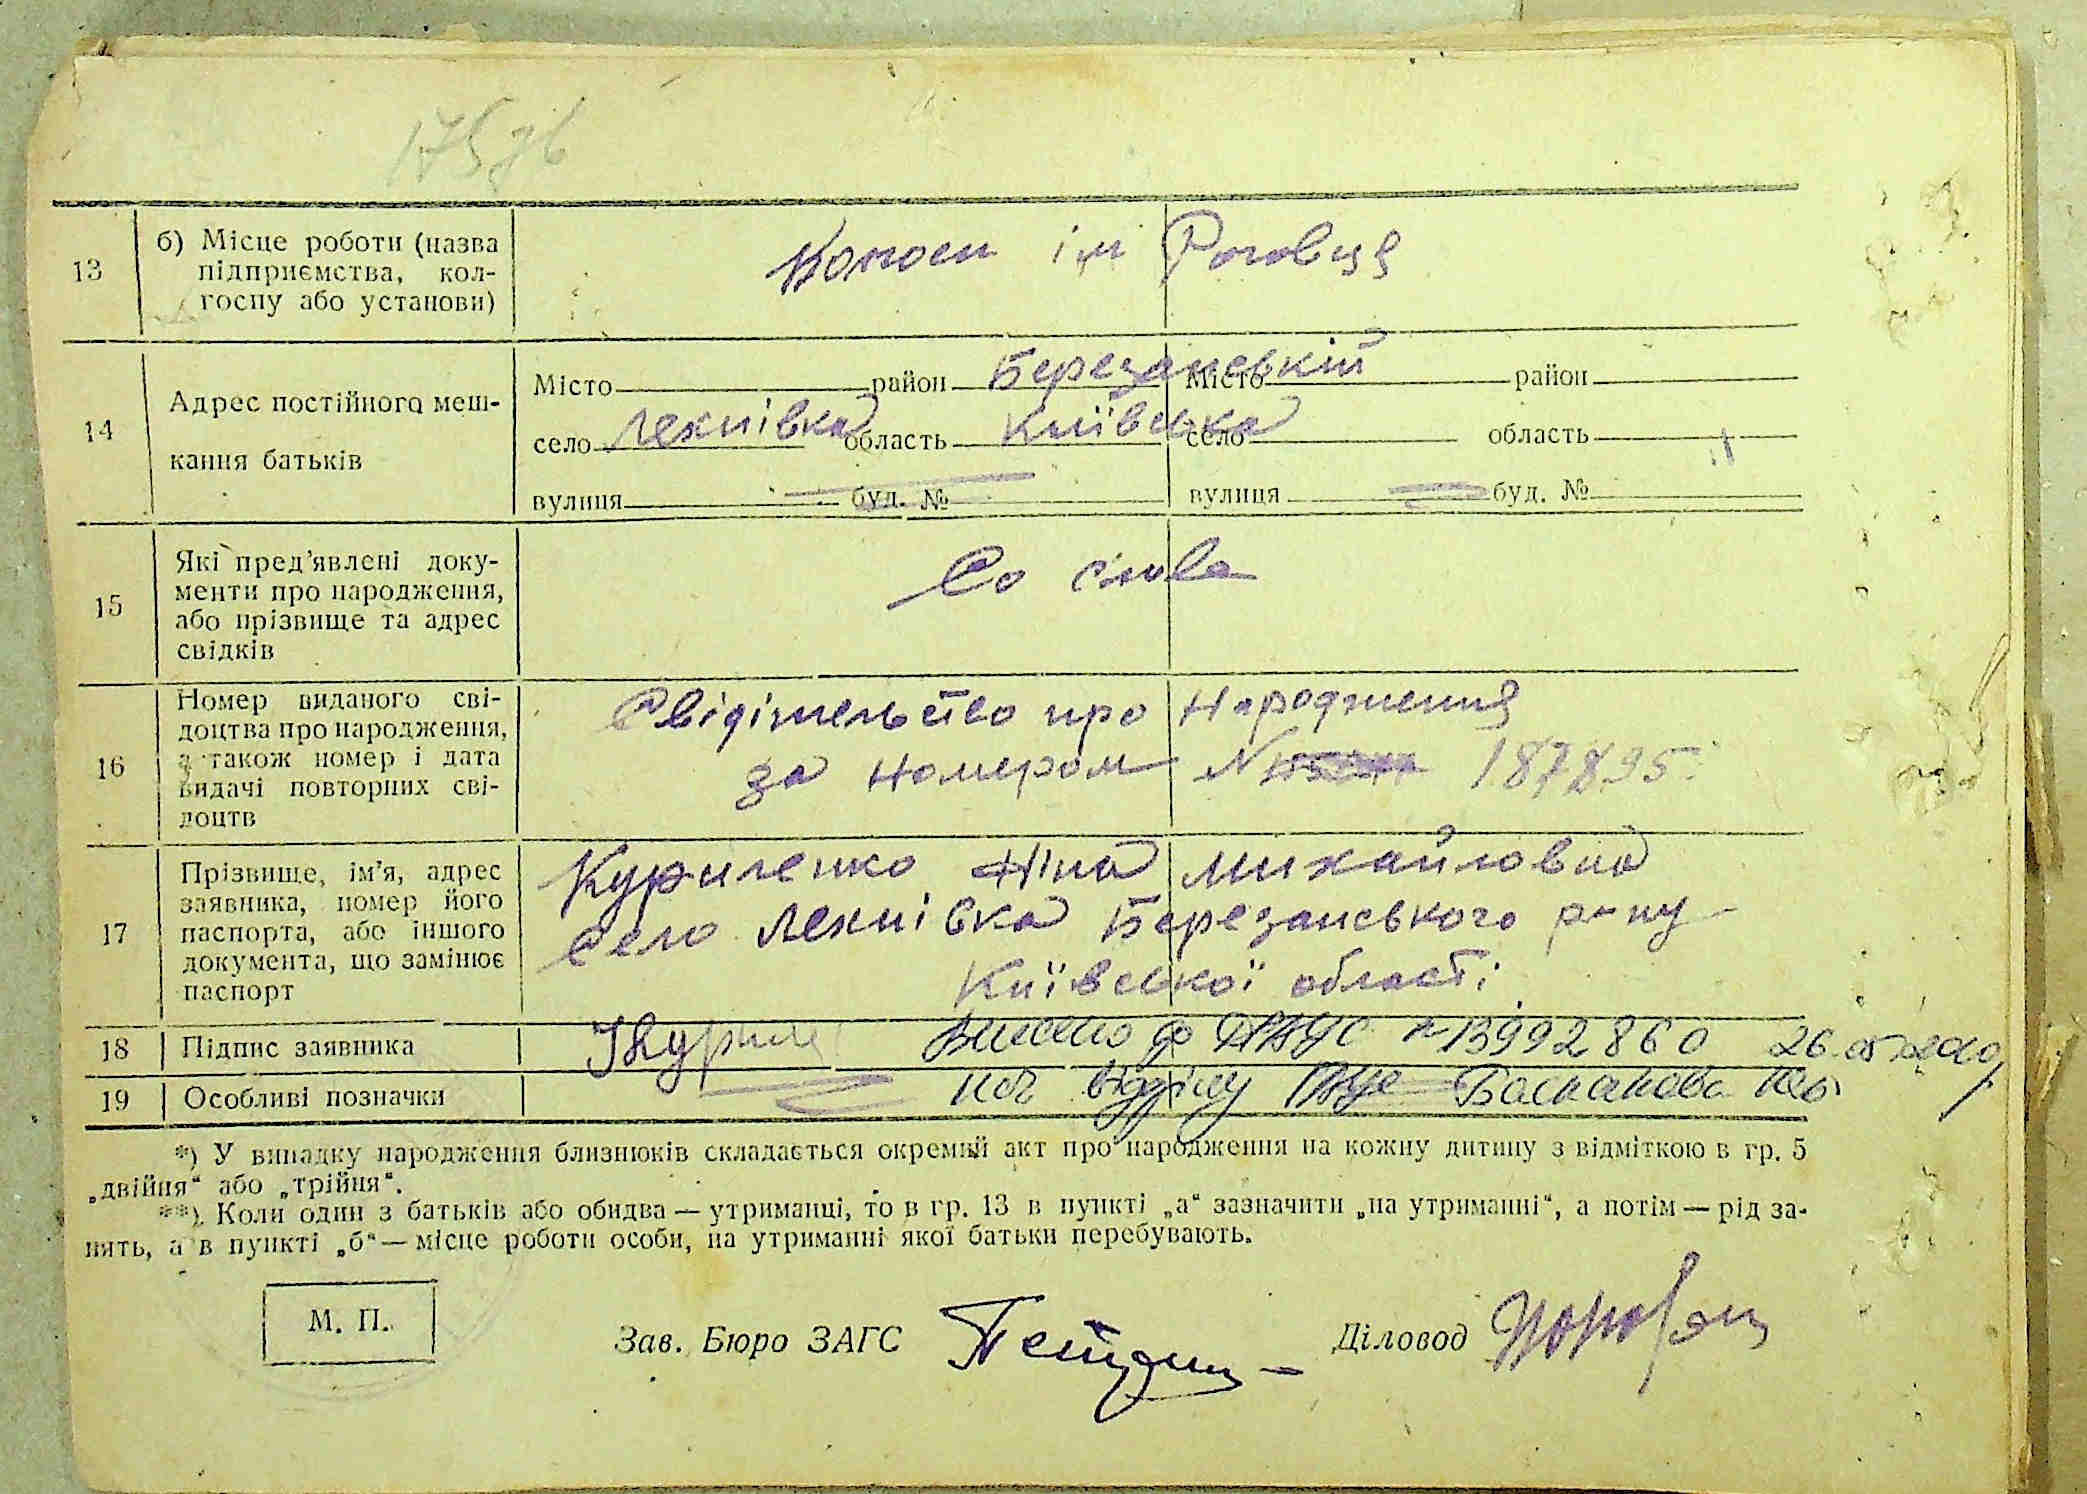 13
б) Місце роботи (назва
підприємства, кол-
госпу або установи)
ім Роговця
14
Адрес постійного меш-
кання батьків
Місто район Березанський Місто район
село Лехнівка область Київська село область
вулиця буд. № вулиця буд. №
15
Які пред'явлені доку-
менти про народження,
або прізвище та адрес
свідків
Со слова
16
Номер виданого сві-
доцтва про народження,
а також номер і дата
видачі повторних сві-
доцтв
Свідітельство про народження
за номером N 187895
17
Прізвище, ім'я, адрес
заявника, номер його
паспорта, або іншого
документа, що замінює
паспорт
Куриленко Ніна Михайловна
село Лехнівка Березанського р-ну
Київської області
18 Підпис заявника
Внесено до ДРАЦС 13992860 26.05
19 Особливі позначки
нач відділу
*) У випадку народження близнюків складається окремий акт про народження на кожну дитину з відміткою в гр. 5
„двійня“ або „трійня“.
**) Коли один з батьків або обидва — утриманці, то в гр. 13 в пункті „а“ зазначити „на утриманні“, а потім — рід за-
нять, а в пункті „б“ — місце роботи особи, на утриманні якої батьки перебувають.
М. П.
Зав. Бюро ЗАГС
Діловод